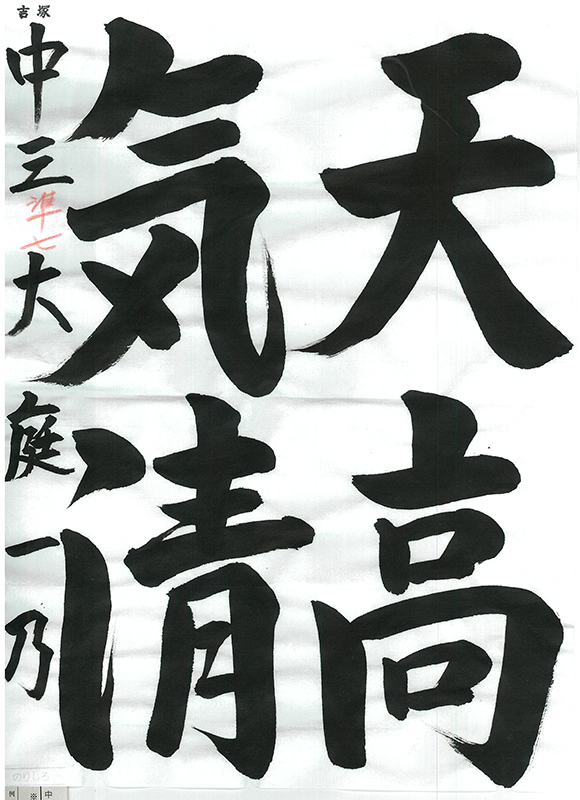 天高
気清
吉塚
中三 準七 大庭一乃
のりしろ
※
中